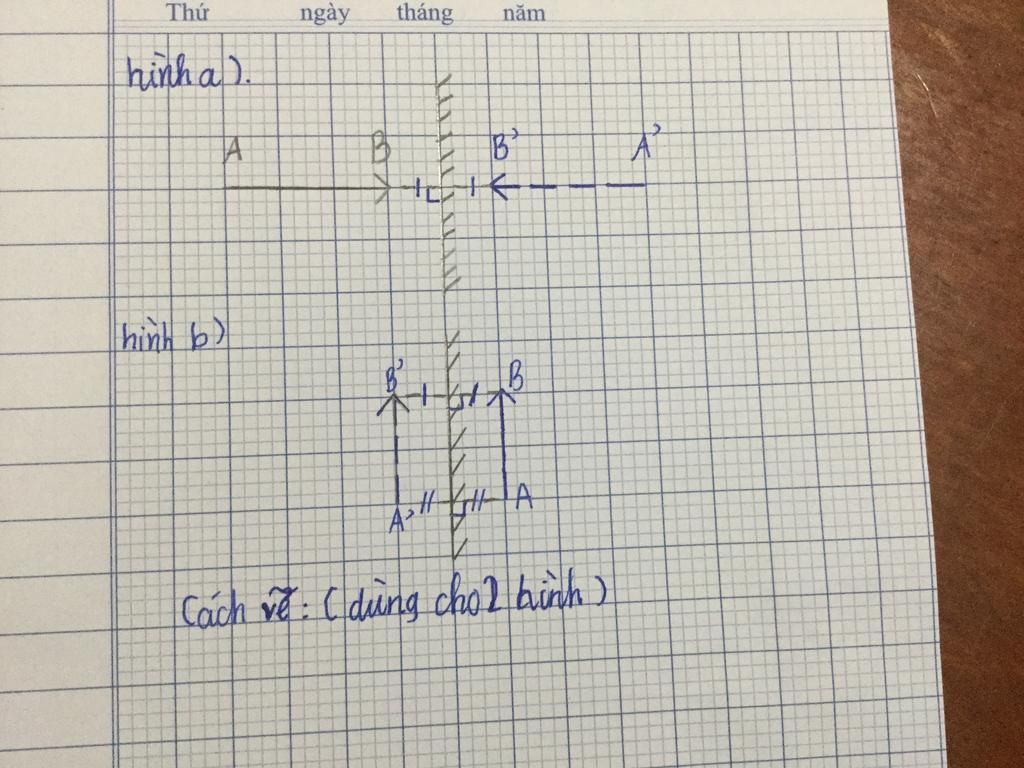 Thứ ngày tháng năm
hình a).
A B B' A'
hình b)
B' B
A' A
Cách vẽ: (dùng cho 2 hình)